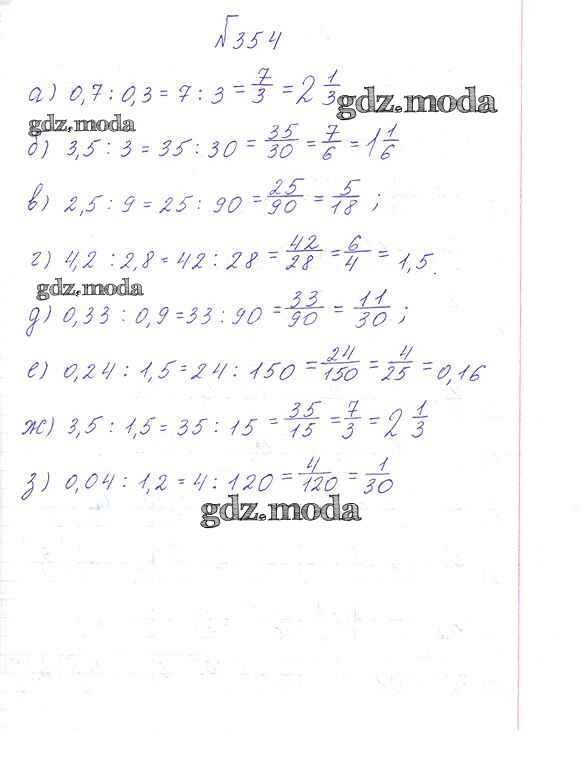 №354
а) 0,7 : 0,3 = 7 : 3 = 7/3 = 2 1/3
gdz.moda
gdz.moda
б) 3,5 : 3 = 35 : 30 = 35/30 = 7/6 = 1 1/6
в) 2,5 : 9 = 25 : 90 = 25/90 = 5/18 ;
г) 4,2 : 2,8 = 42 : 28 = 42/28 = 6/4 = 1,5.
gdz.moda
д) 0,33 : 0,9 = 33 : 90 = 33/90 = 11/30 ;
е) 0,24 : 1,5 = 24 : 150 = 24/150 = 4/25 = 0,16
ж) 3,5 : 1,5 = 35 : 15 = 35/15 = 7/3 = 2 1/3
з) 0,04 : 1,2 = 4 : 120 = 4/120 = 1/30
gdz.moda